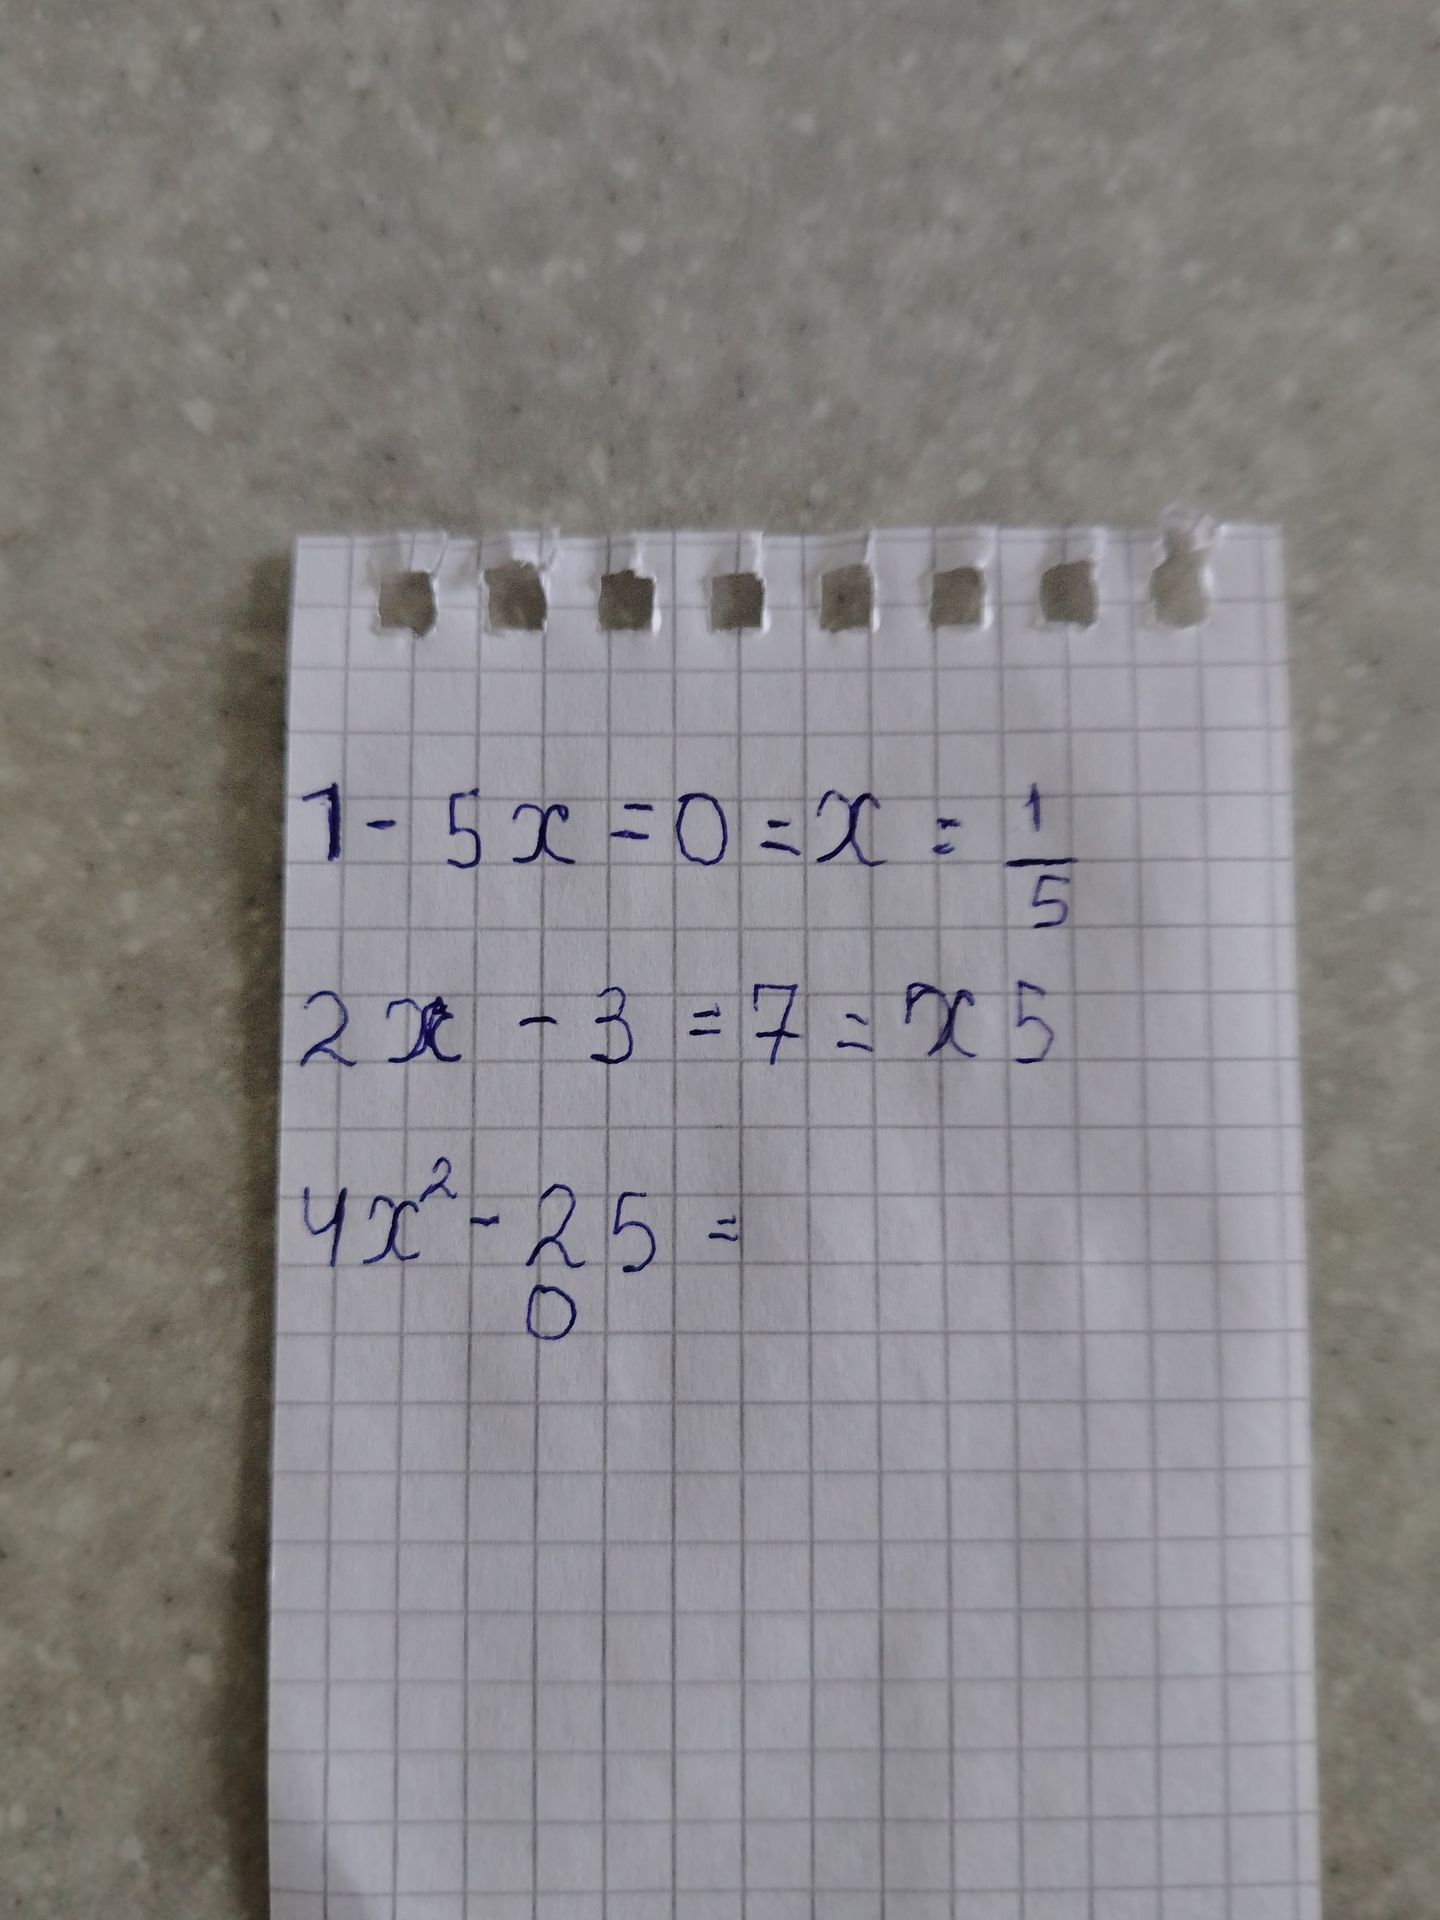 1 - 5x = 0 = x = 1/5
2x - 3 = 7 = x 5
4x² - 25 =
0